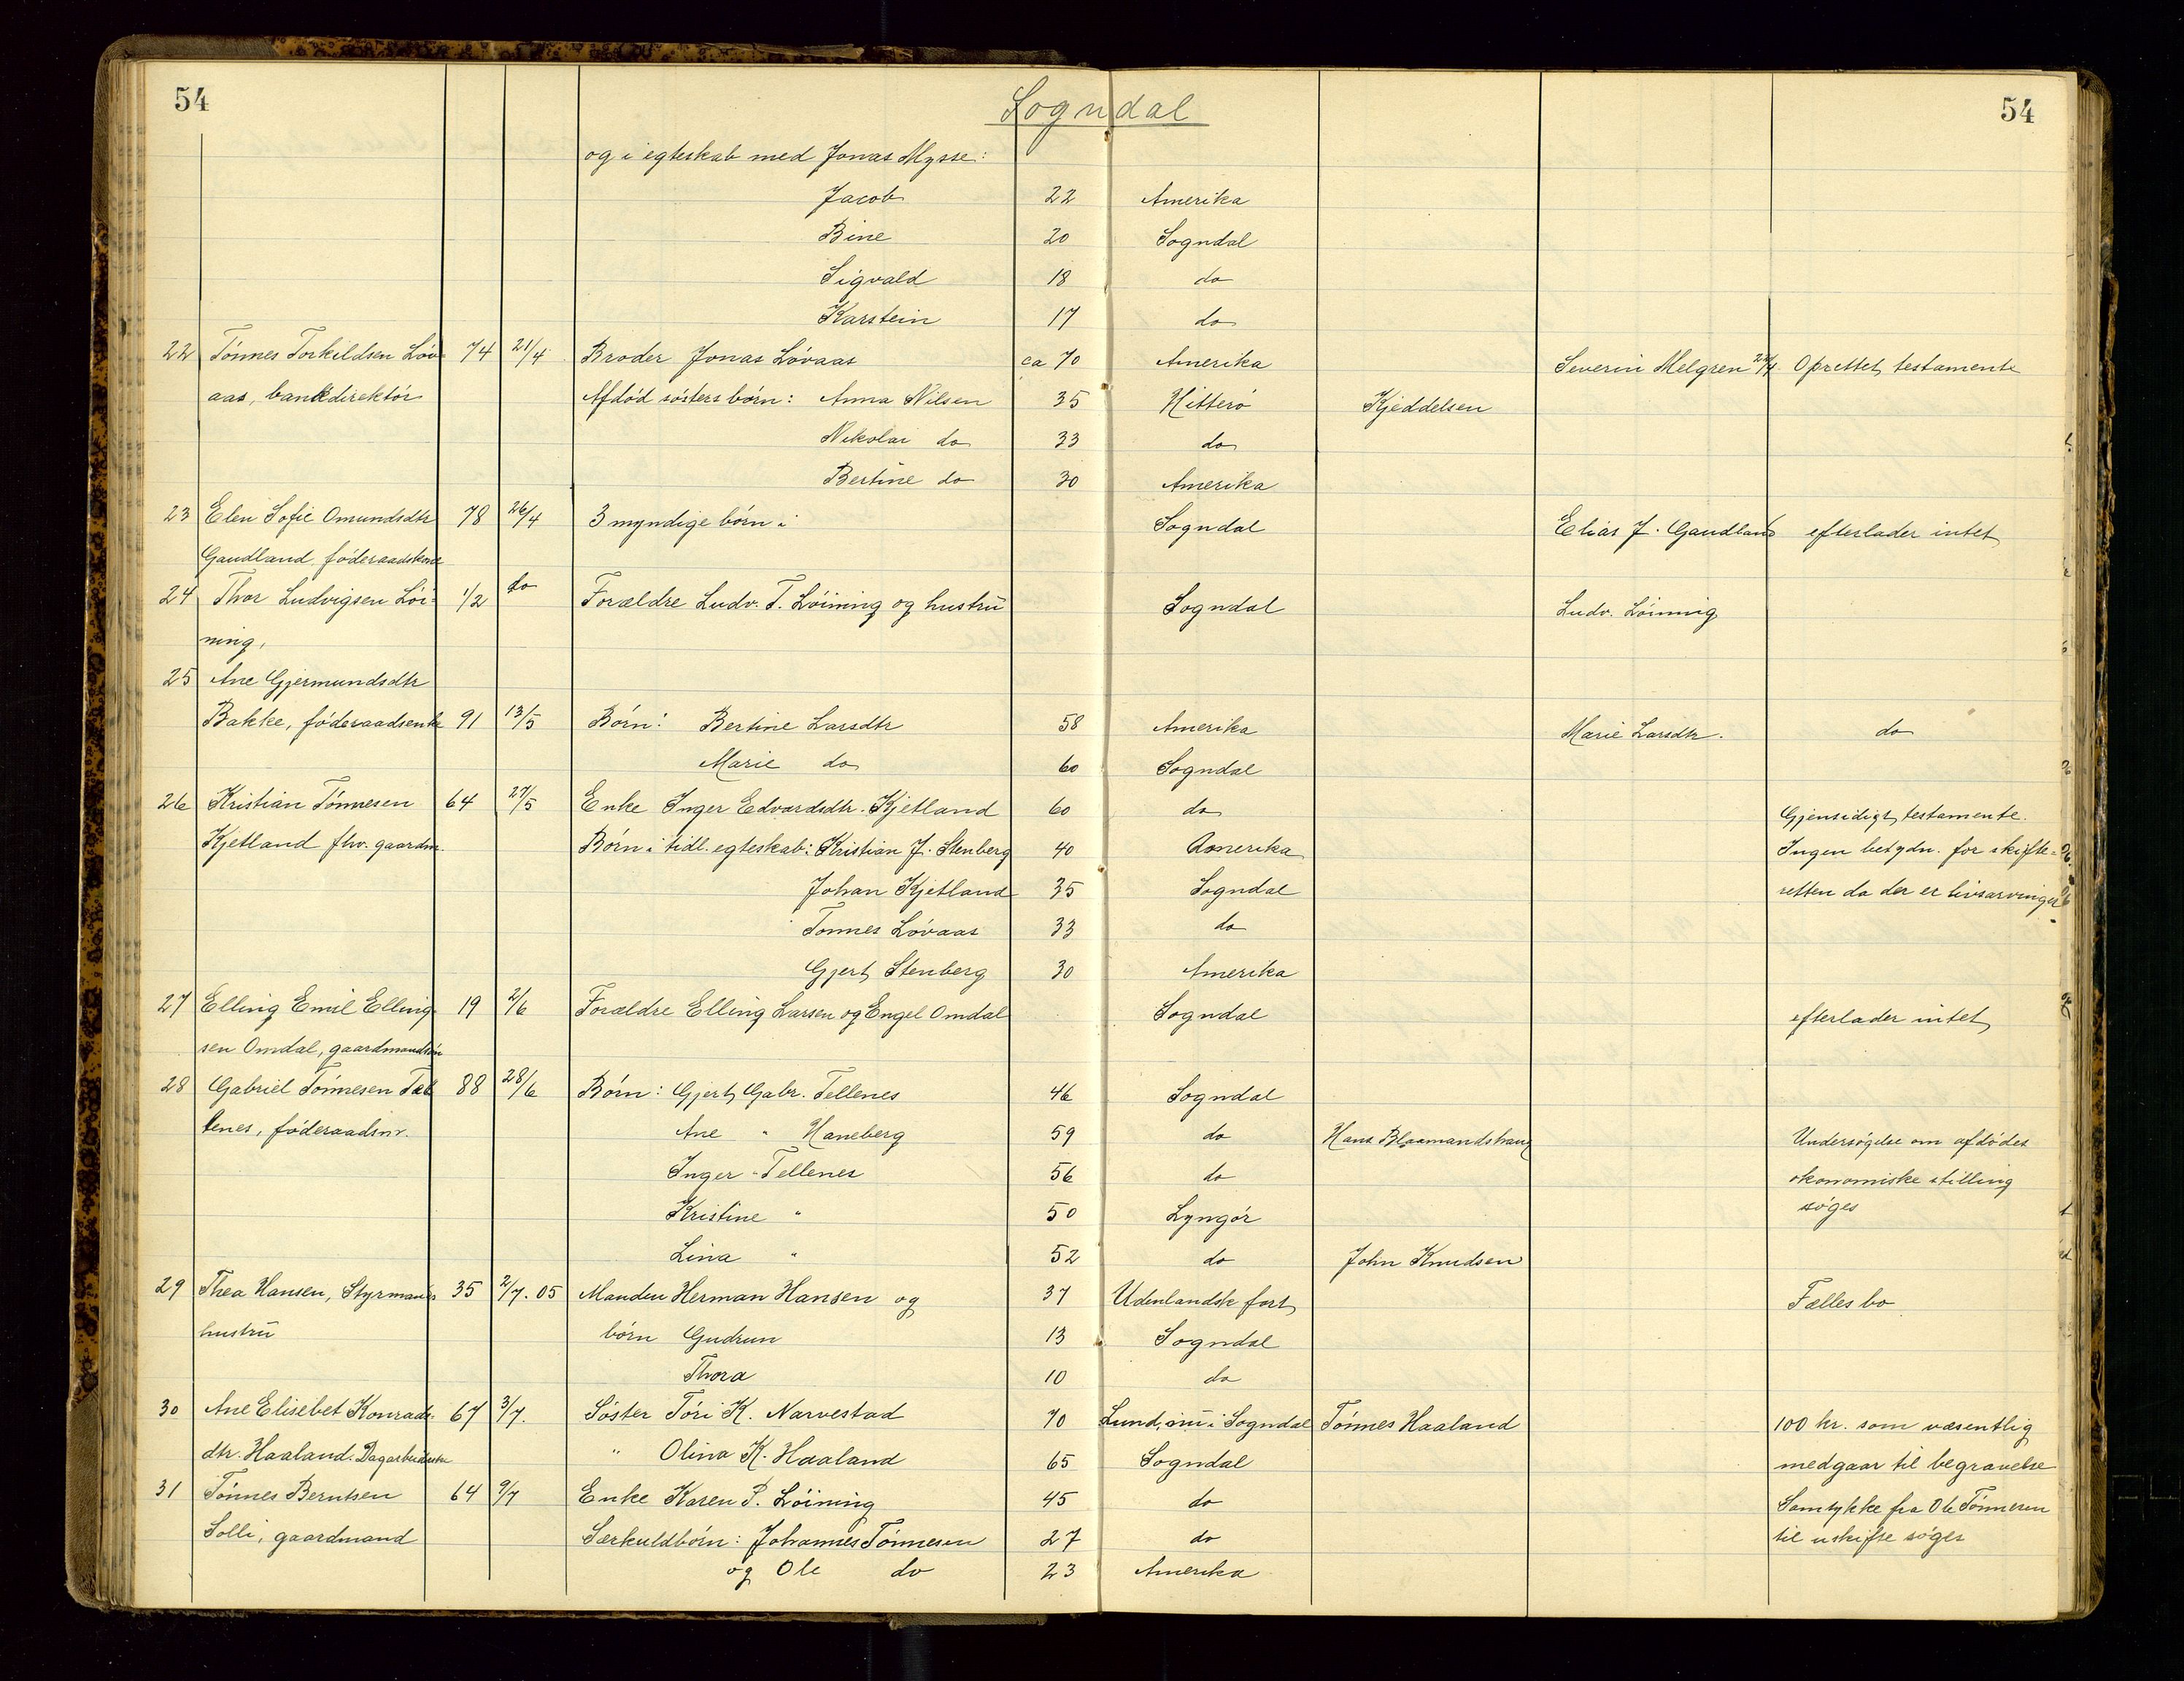 54
54
Sogndal
og i egteskab med Jonas Mysse:
Jacob 22 Amerika
Bine 20 Sogndal
Sigvald 18 do
Karstein 17 do
22 Tönnes Torkildsen Löv- 74 21/4 Broder Jonas Lövaas ca 70 Amerika Severin Melgren Oprettet testamente
aas, bankdirektör Afdöd sösters börn: Anna Nilsen 35 Hitterö Kjeddelsen
Nikolai do 33 do
Bertine do 30 Amerika
23 Elen Sofie Omundsdtr 78 26/4 3 myndige börn i Sogndal Elias J. Gaudland efterlader intet
Gaudland, föderaadskone
24 Thor Ludvigsen Löi- 1/2 do Forældre Ludv. T. Löining og hustru Sogndal Ludv. Löining
ning,
25 Ane Gjermundsdtr
Bakke, föderaadsenke 91 13/5 Börn: Bertine Larsdtr 58 Amerika Marie Larsdtr. do
Marie do 60 Sogndal
26 Kristian Tönnesen 64 27/5 Enke Inger Edvardsdtr. Kjetland 60 do Gjensidigt testamente.
Kjetland fhv. gaardm. Börn i tidl. egteskab: Kristian J. Stenberg 40 Amerika Ingen betydn. for skifte-
Johan Kjetland 35 Sogndal retten da der er livsarvinger
Tönnes Lövaas 33 do
Gjert Stenberg 30 Amerika
27 Elling Emil Elling- 19 2/6 Forældre Elling Larsen og Engel Omdal Sogndal efterlader intet
sen Omdal, gaardmandssön
28 Gabriel Tönnesen Tel- 88 28/6 Börn: Gjert Gabr. Tellenes 46 Sogndal
lenes, föderaadsm. Ane " Haneberg 59 do Hans Blaamandshaug Undersögelse om afdödes
Inger " Tellenes 56 do ökonomiske stilling
Kristine " 50 Lyngör söges
Lina " 52 do John Knudsen
29 Thea Hansen, Styrmands 35 2/7.05 Manden Herman Hansen og 37 Udenlandsk fart Fælles bo
hustru börn Gudrun 13 Sogndal
Thora 10 do
30 Ane Elisebet Konrads- 67 3/7. Söster Töri K. Narvestad 70 Lund, nu i Sogndal Tönnes Haaland 100 kr. som væsentlig
dtr. Haaland. Dagarbeiderske " Olina K. Haaland 65 Sogndal medgaar til begravelse
31 Tönnes Berntsen 64 9/7 Enke Karen P. Löining 45 do Samtykke fra Ole Tönnesen
Solli, gaardmand Særkuldbörn: Johannes Tönnesen 27 do til uskifte söges
og Ole do 23 Amerika